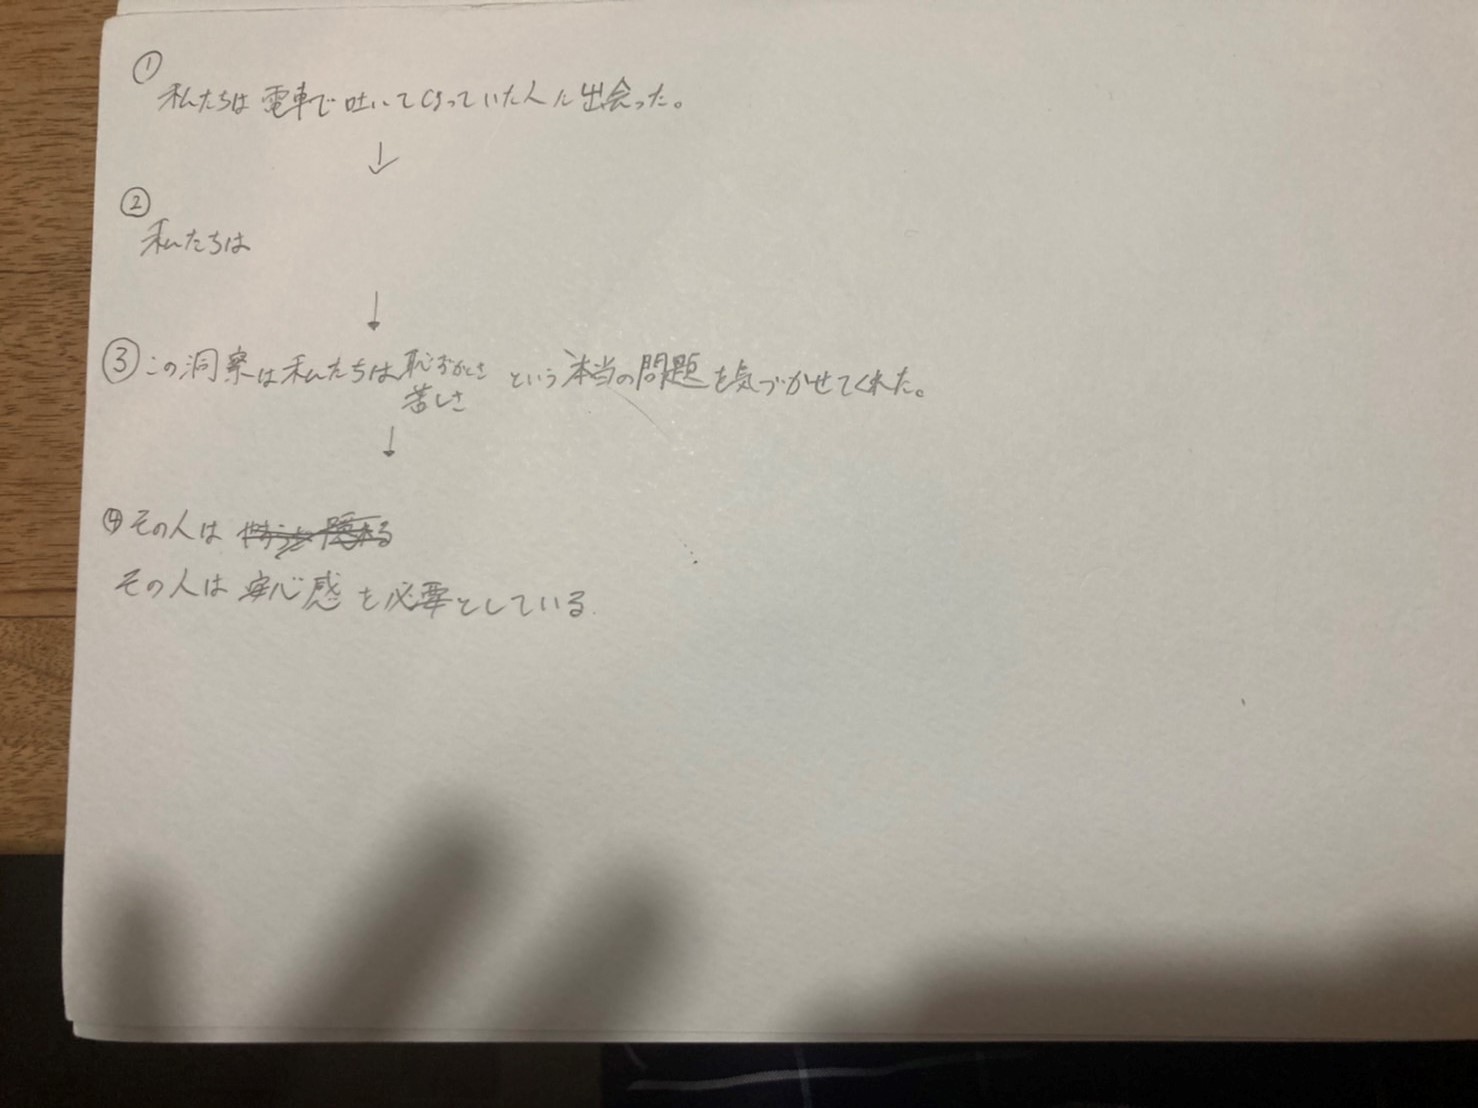 ①
私たちは電車で吐いてしまっていた人に出会った。
↓
②
私たちは
↓
③この洞察は私たちは恥ずかしさ 苦しさ という本当の問題を気づかせてくれた。
↓
④その人は
その人は安心感を必要としている.